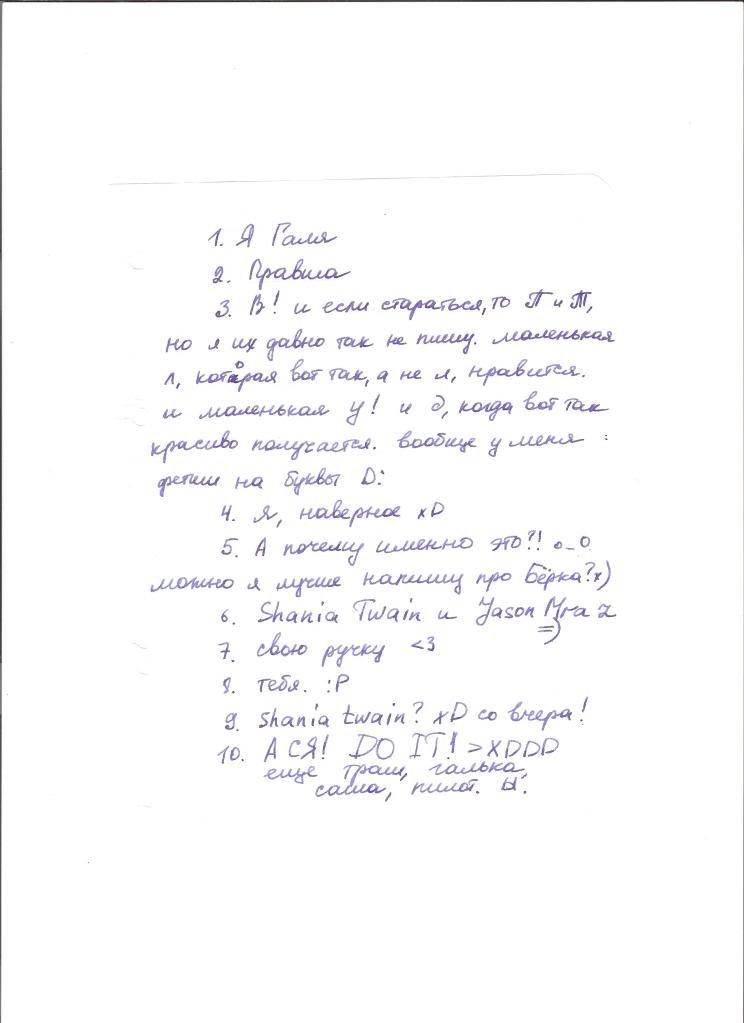 1. Я Галя
2. Правша
3. В! и если стараться, то П и Т,
но я их давно так не пишу. маленькая
л, которая вот так, а не л, нравится.
и маленькая у! и д, когда вот так
красиво получается. вообще у меня
фетиш на буквы D:
4. Я, наверное xD
5. А почему именно это?! o_O
можно я лучше напишу про Бёрка? x)
6. Shania Twain и Jason Mraz
=)
7. свою ручку <3
8. тебя. :P
9. shania twain? xD со вчера!
10. АСЯ! DO IT! >XDDD
еще траш, галька,
саша, пилот. Ы.